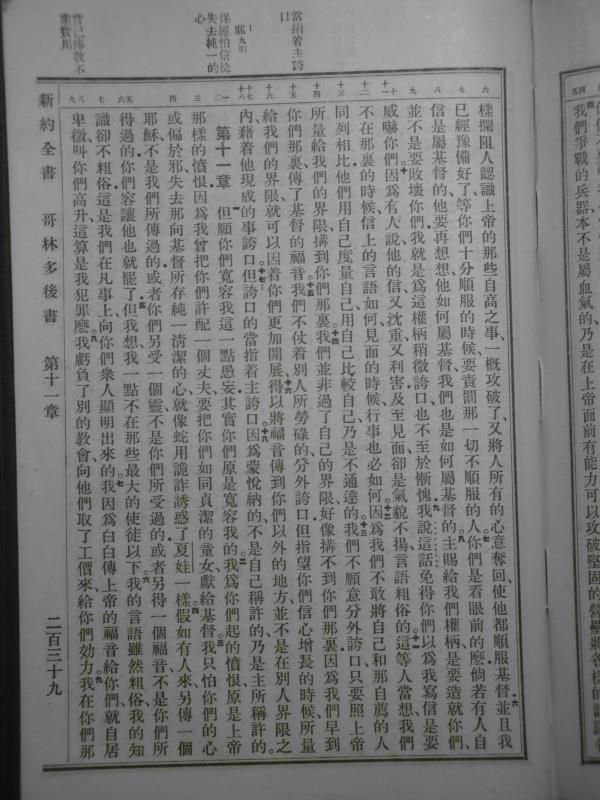 我們爭戰的兵器、本不是屬血氣的、乃是在上帝面前有能力可以攻破堅固的營壘將各樣的計謀各
當指着主誇口
耶九23
保羅怕信徒失去純一的心
樣攔阻人認識上帝的那些自高之事、一概攻破了又將人所有的心意奪回、使他都順服基督並且我
已經豫備好了等你們十分順服的時候、要責罰那一切不順服的人你們是看眼前的麽倘若有人自
信是屬基督的他要再想想、他如何屬基督我們也是如何屬基督的主賜給我們權柄、是要造就你們、
並不是要敗壞你們我就是爲這權柄稍微誇口、也不至於慚愧我說這話免得你們以爲我寫信是要
威嚇你們因爲有人說、他的信又沈重又利害及至見面卻是氣貌不揚言語粗俗的這等人當想我們
不在那裏的時候信上的言語如何、見面的時候行事也必如何因爲我們不敢將自己和那自薦的人
同列相比他們用自己度量自己、用自己比較自己、乃是不通達的我們不願意分外誇口、只要照上帝
所量給我們的界限、搆到你們那裏我們並非過了自己的界限、好像搆不到你們那裏因爲我們早到
你們那裏傳了基督的福音我們不仗着別人所勞碌的分外誇口但指望你們信心增長的時候、所量
給我們的界限、就可以因着你們更加開展得以將福音傳到你們以外的地方並不是在別人界限之
內、藉着他現成的事誇口但誇口的當指着主誇口因爲蒙悅納的不是自己稱許的乃是主所稱許的。
第十一章 但願你們寬容我這一點愚妄、其實你們原是寬容我的我爲你們起的憤恨、原是上帝
那樣的憤恨因爲我曾把你們許配一個丈夫、要把你們如同貞潔的童女獻給基督我只怕你們的心
或偏於邪失去那向基督所存純一清潔的心就像蛇用詭詐誘惑了夏娃一樣假如有人來另傳一個
耶穌不是我們所傳過的或者你們另受一個靈不是你們所受過的或者另得一個福音不是你們所
得過的你們容讓他也就罷了但我想我一點不在那些最大的使徒以下我的言語雖然粗俗我的知
識卻不粗俗這是我們在凡事上向你們衆人顯明出來的我因爲白白傳上帝的福音給你們、就自居
卑微、叫你們高升這算是我犯罪麽我虧負了別的教會、向他們取了工價來、給你們効力我在你們那
新約全書 哥林多後書 第十一章 二百三十九